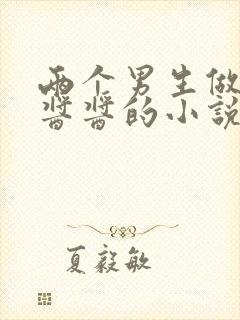 两个男生做
酱酱的小说
夏毅敏